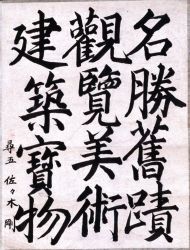 名勝舊蹟
觀覽美術
建築寶物
尋五 佐々木剛